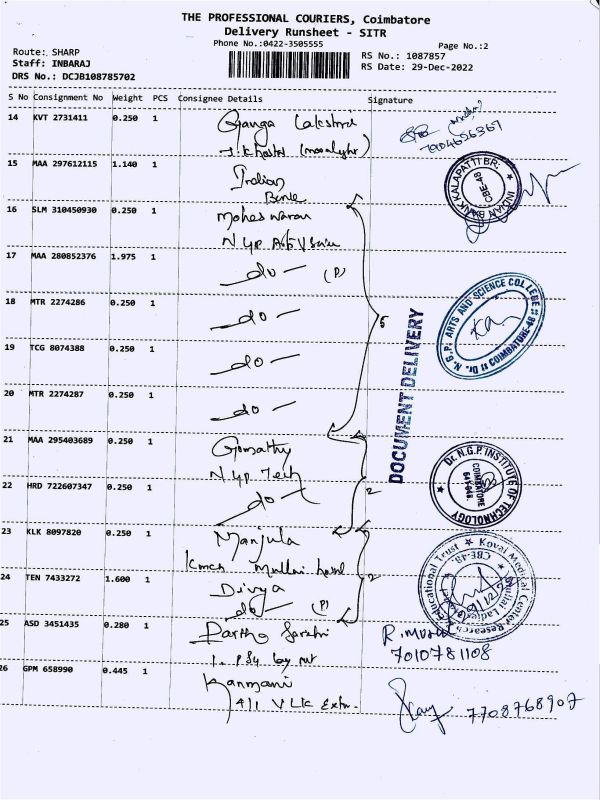 THE PROFESSIONAL COURIERS, Coimbatore
Delivery Runsheet - SITR
Phone No.:0422-3505555
Page No.:2
Route: SHARP
Staff: INBARAJ
DRS No.: DCJB108785702
RS No.: 1087857
RS Date: 29-Dec-2022
S No Consignment No Weight PCS Consignee Details Signature
14 KVT 2731411 0.250 1 Ganga Lakshmi
7904656367
15 MAA 297612115 1.140 1 Indian
Bank
INDIAN BANK KALAPATTI BR. CBE-48
16 SLM 310450930 0.250 1 Moheswaran
N G P Arts
17 MAA 280852376 1.975 1 do (P)
18 MTR 2274286 0.250 1 do
5
DOCUMENT DELIVERY
Dr. N.G.P. ARTS AND SCIENCE COLLEGE COIMBATORE-48
19 TCG 8074388 0.250 1 do
20 MTR 2274287 0.250 1 do
21 MAA 295403689 0.250 1 Gomathy
N.G.P Tech
22 HRD 722607347 0.250 1 do
2
Dr. N.G.P. INSTITUTE OF TECHNOLOGY COIMBATORE 641 048.
23 KLK 8097820 0.250 1 Manjula
Kmch Mullai hostel
24 TEN 7433272 1.600 1 Divya
do (P)
2
Kovai Medical Center Research Educational Trust CBE-48
25 ASD 3451435 0.280 1 Partha Sarathi
7010781108
26 GPM 658990 0.445 1 Kanmani
4/1 V LIC Extn.
7708768907